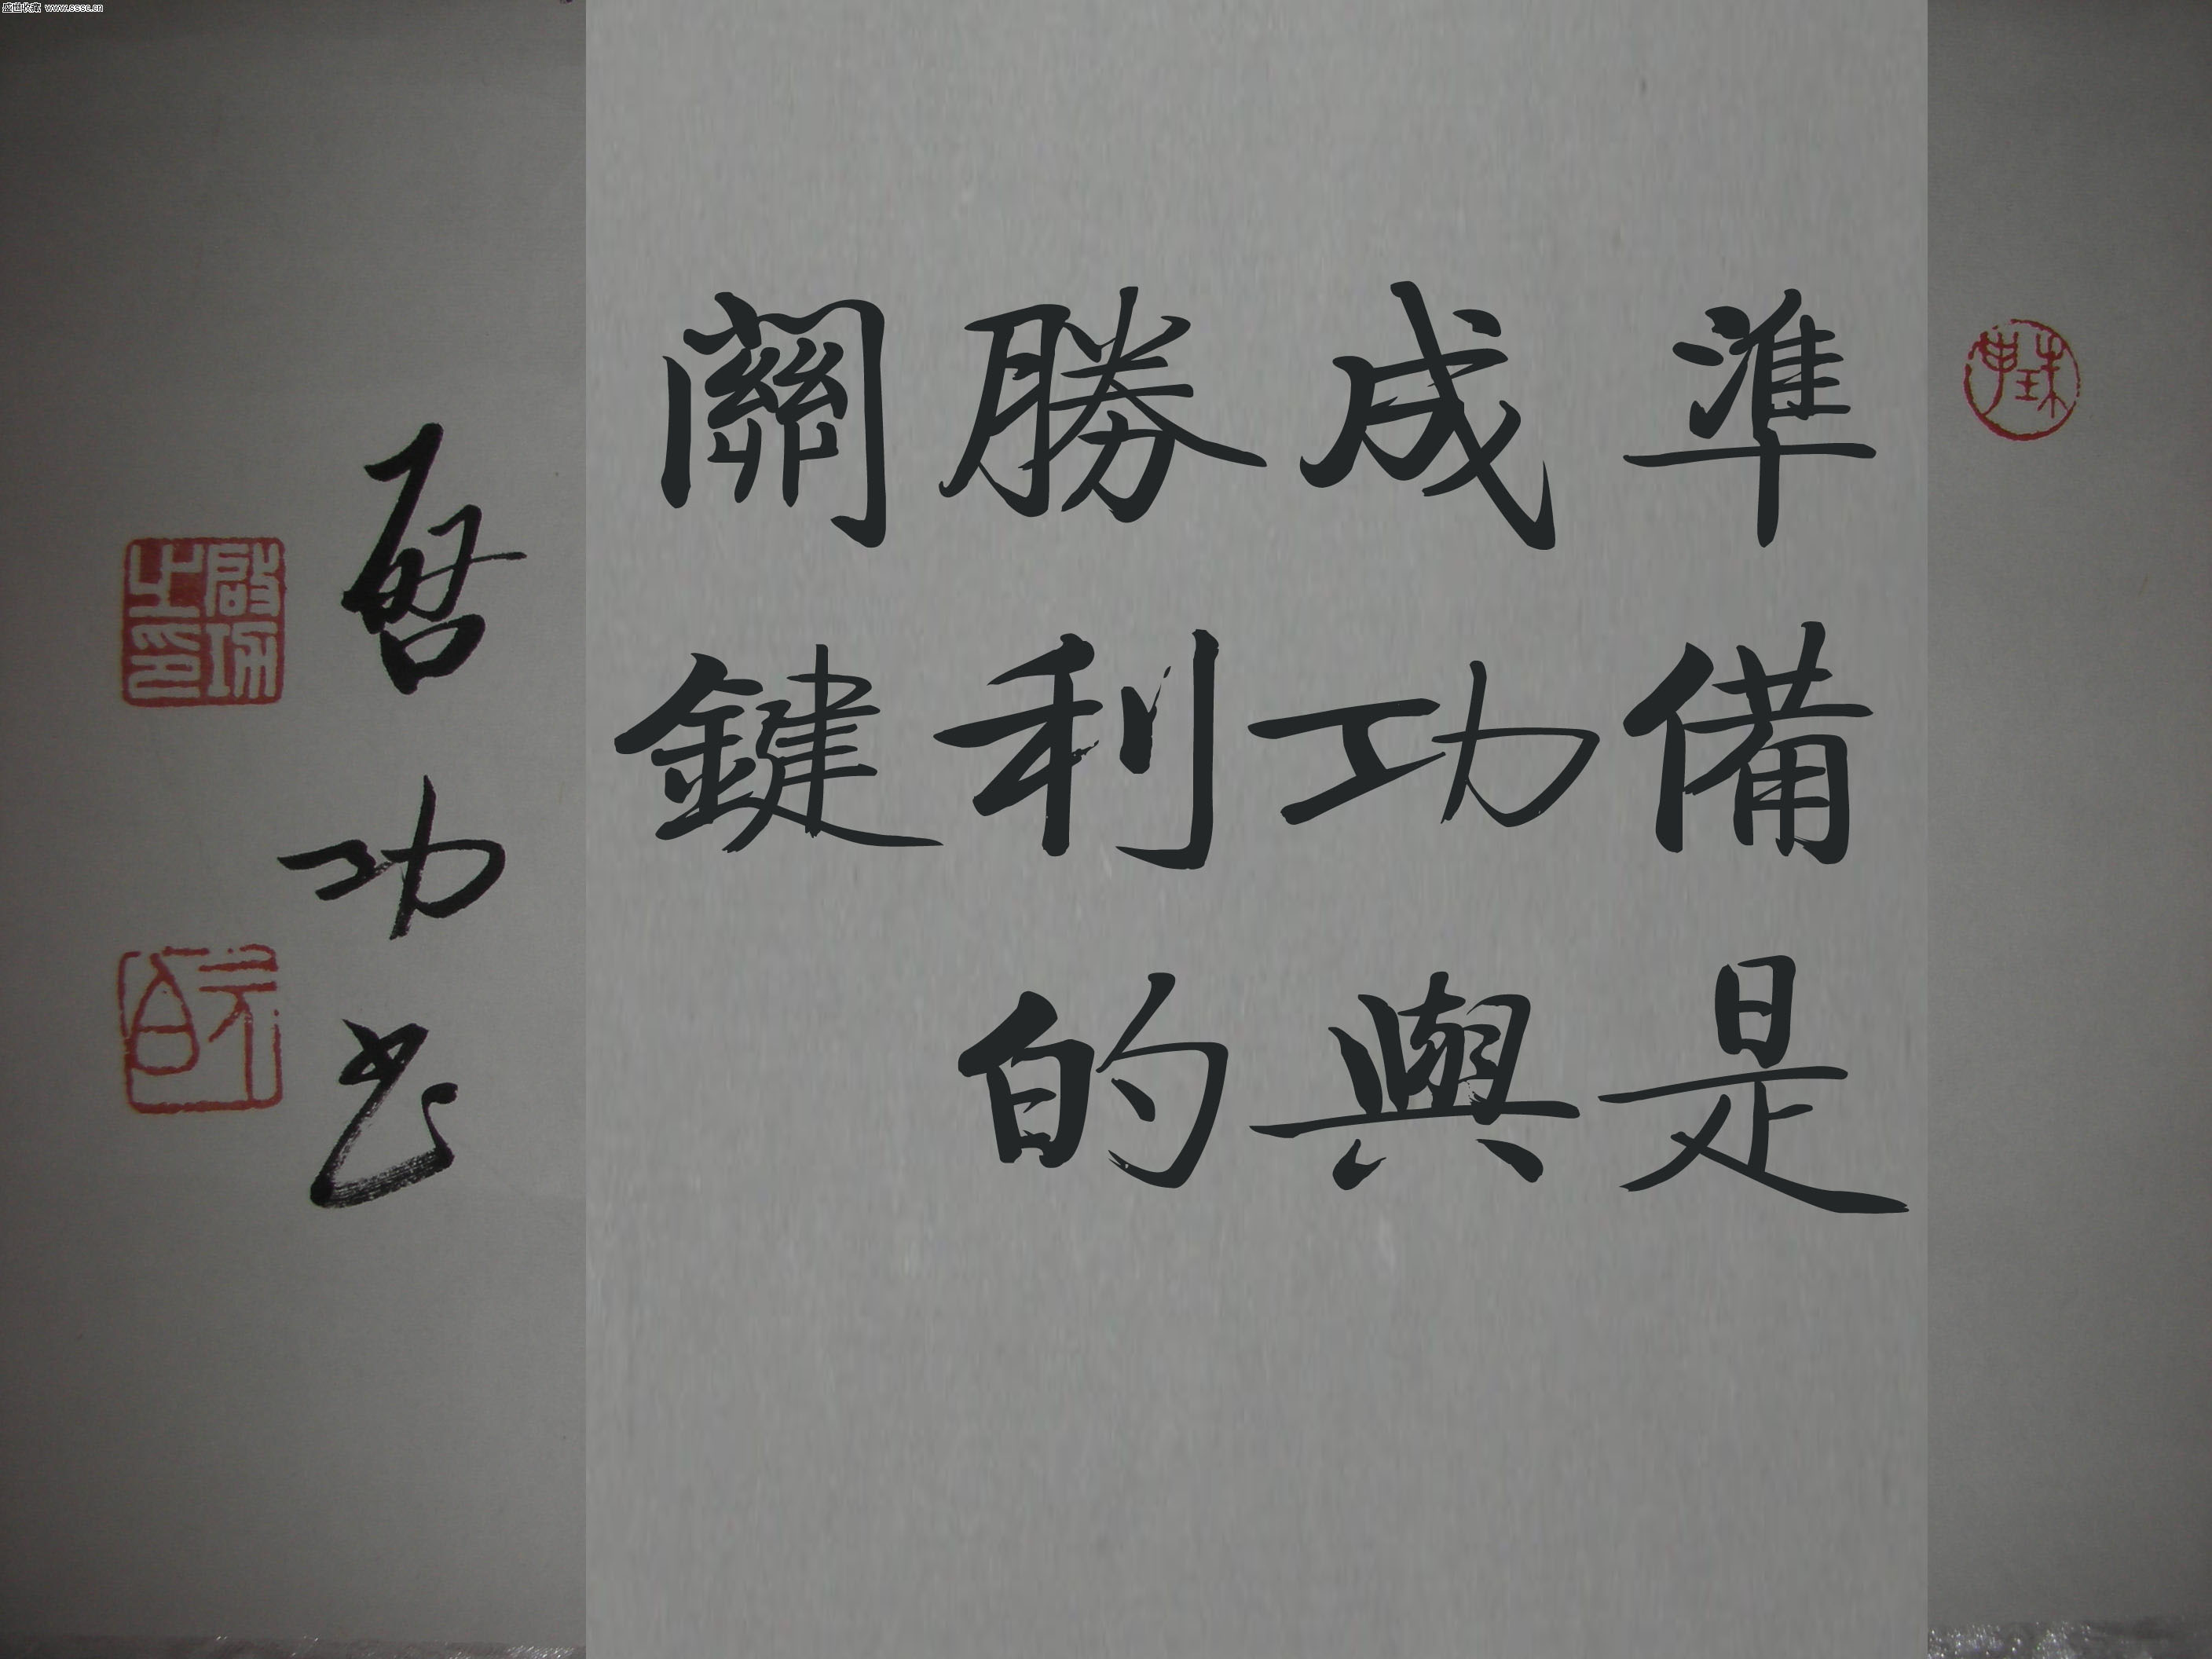 準備是
成功與
勝利的
關鍵
啓功书
啟功之印
元白
盛世收藏 www.sssc.cn